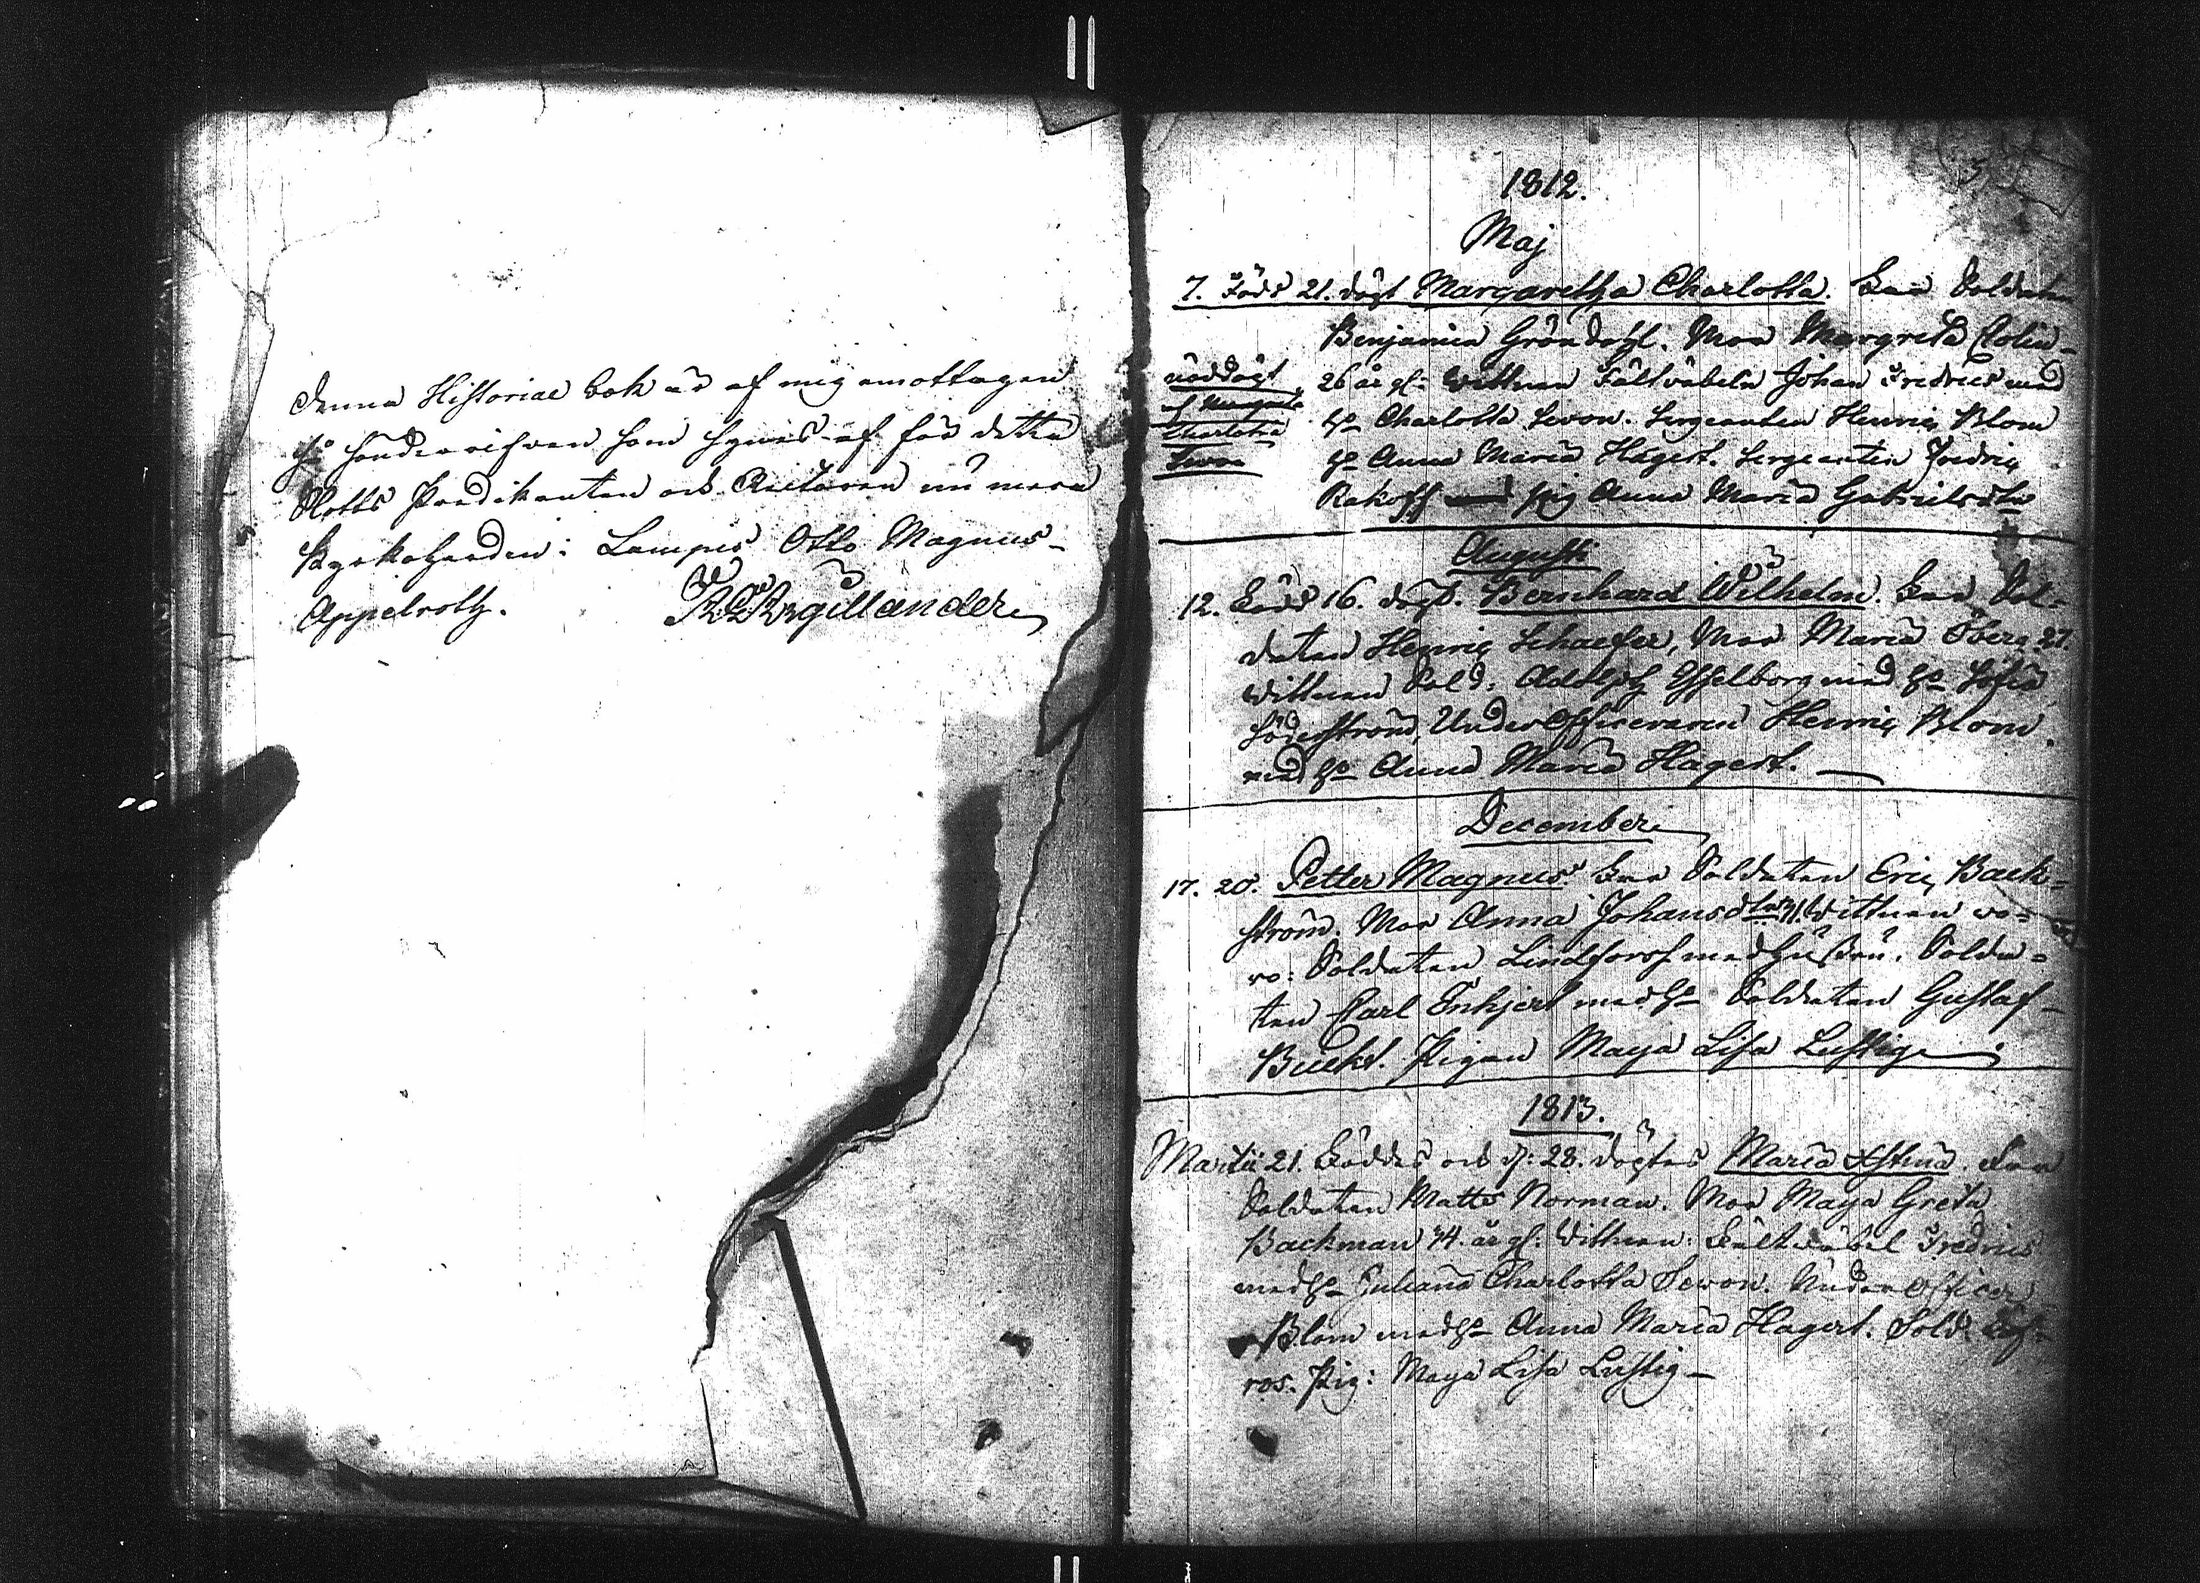 Denna Historiae bok är af mig emottagen
så sönderrifven som synes af för detta
Slotts Predikanten och Rectoren nu mera
Kyrkoherden i Lampis Otto Magnus
Appelroth.
Argillander
3
1812.
Maj
7. Föds 21. döpt Margaretha Charlotta. Far Soldaten
Benjamin Gröndahl. Mor Margreta Colin
26 år gl: Wittnen Fältväbeln Johan Fredrics med
nöddöpt
hu Charlotta Sevon. Sergeanten Henric Blom
af Margreta
Charlotta
Sevon
hu Anna Maria Hagert. Sergeanten Fredric
Rakoff pig Anna Maria Gabrielsdtr
Augusti
12. Föds 16. döpt. Bernhard Wilhelm. Far Sol=
daten Henric Schaefer, Mor Maria Öberg 27.
Wittnen Sold: Adolph Esselborg med hu Sofia
Söderström, Underofficeraren Henric Blom
med hu Anna Maria Hagert.
December
17. 20. Petter Magnus. Far Soldaten Eric Back=
ström. Mor Anna Johansdtr 31. Wittnen wo=
ro: Soldaten Lindfors med hustru. Solda=
ten Carl Enhjert med hu Soldaten Gustaf
Bucht. Pigan Maya Lisa Lustig
1813.
Martii 21. Föddes och d: 28. döptes Maria Xstina. Far
Soldaten Matts Norman. Mor Maya Greta
Backman 44. år gl: Wittnen: Fältväbel Fredrics
med hu Juliana Charlotta Sevon. Underofficer
Blom med hu Anna Maria Hagert. Sold:
ros. Pig: Maya Lisa Lustig